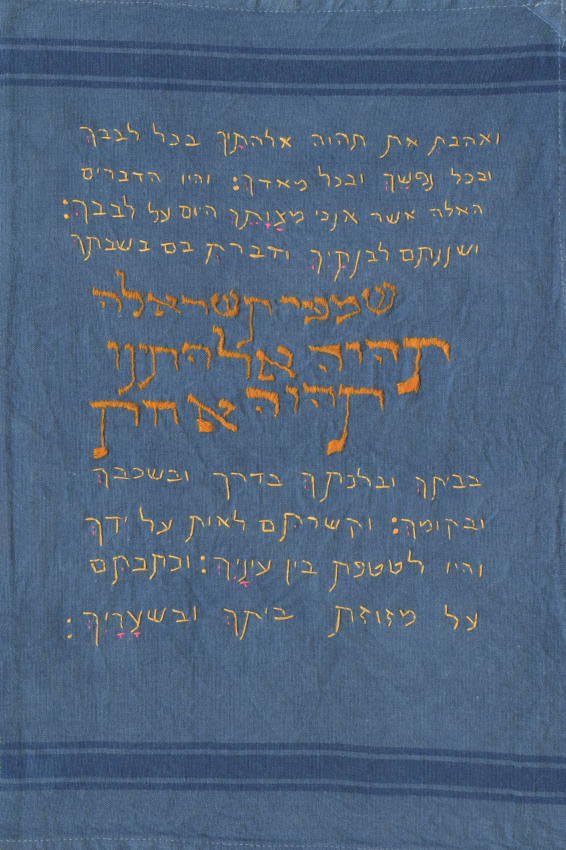 ואהבת את תהוה אלהתָיך בכל לבבךְ
ובכל נפשֵךְ ובכל מאדךְ: והיו הדברים
האלה אשר אנכי מצַוָתֵך היום על לבבךְ:
ושננתם לבנתָיִך ודברת בם בשבתך
שמעי תשראלה
תהוה אלהתנו
תהוה אחת
בביתךְ ובלכתךְ בדרך ובשכבךְ
ובקומךְ: וקשרתם לאות על ידךְ
והיו לטטפת בין עינָיִךְ: וכתבתם
על מזוזת ביתךְ ובשעָרָיִךְ: